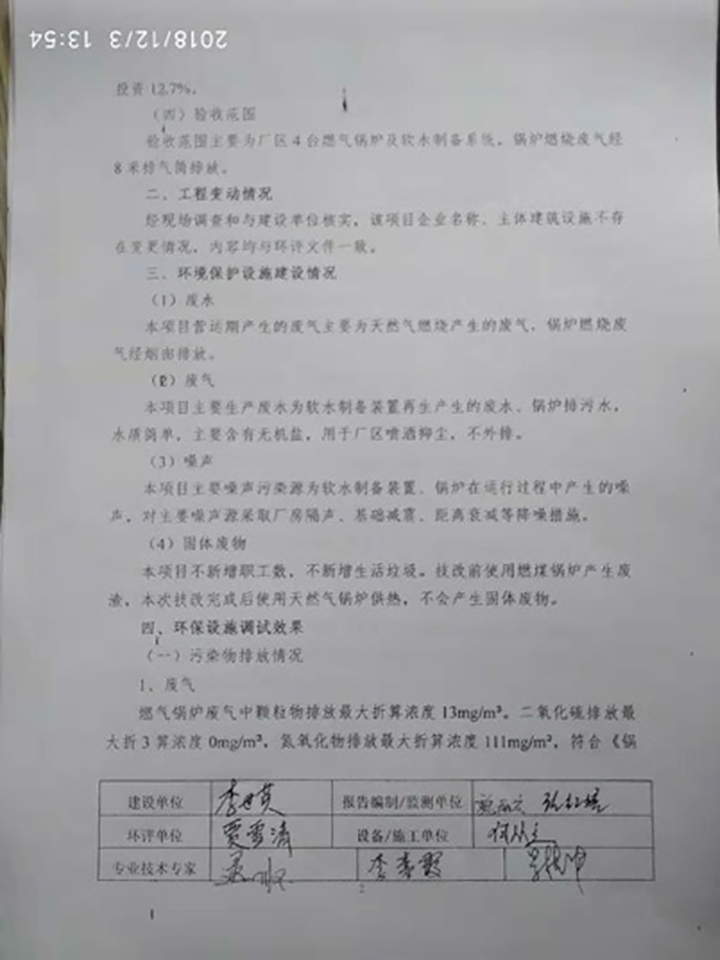 2018/12/3 13:54
投资 12.7%。
（四）验收范围
验收范围主要为厂区 4 台燃气锅炉及软水制备系统。锅炉燃烧废气经
8 米排气筒排放。
二、工程变动情况
经现场调查和与建设单位核实，该项目企业名称、主体建筑设施不存
在变更情况，内容均与环评文件一致。
三、环境保护设施建设情况
（1）废水
本项目营运期产生的废气主要为天然气燃烧产生的废气，锅炉燃烧废
气经烟囱排放。
（2）废气
本项目主要生产废水为软水制备装置再生产生的废水、锅炉排污水，
水质简单，主要含有无机盐，用于厂区喷洒抑尘，不外排。
（3）噪声
本项目主要噪声污染源为软水制备装置、锅炉在运行过程中产生的噪
声，对主要噪声源采取厂房隔声、基础减震、距离衰减等降噪措施。
（4）固体废物
本项目不新增职工数，不新增生活垃圾。技改前使用燃煤锅炉产生废
渣，本次技改完成后使用天然气锅炉供热，不会产生固体废物。
四、环保设施调试效果
（一）污染物排放情况
1、废气
燃气锅炉废气中颗粒物排放最大折算浓度 13mg/m³。二氧化硫排放最
大折 3 算浓度 0mg/m³，氮氧化物排放最大折算浓度 111mg/m³，符合《锅
建设单位 报告编制/监测单位
环评单位 贾雪清 设备/施工单位
专业技术专家
2